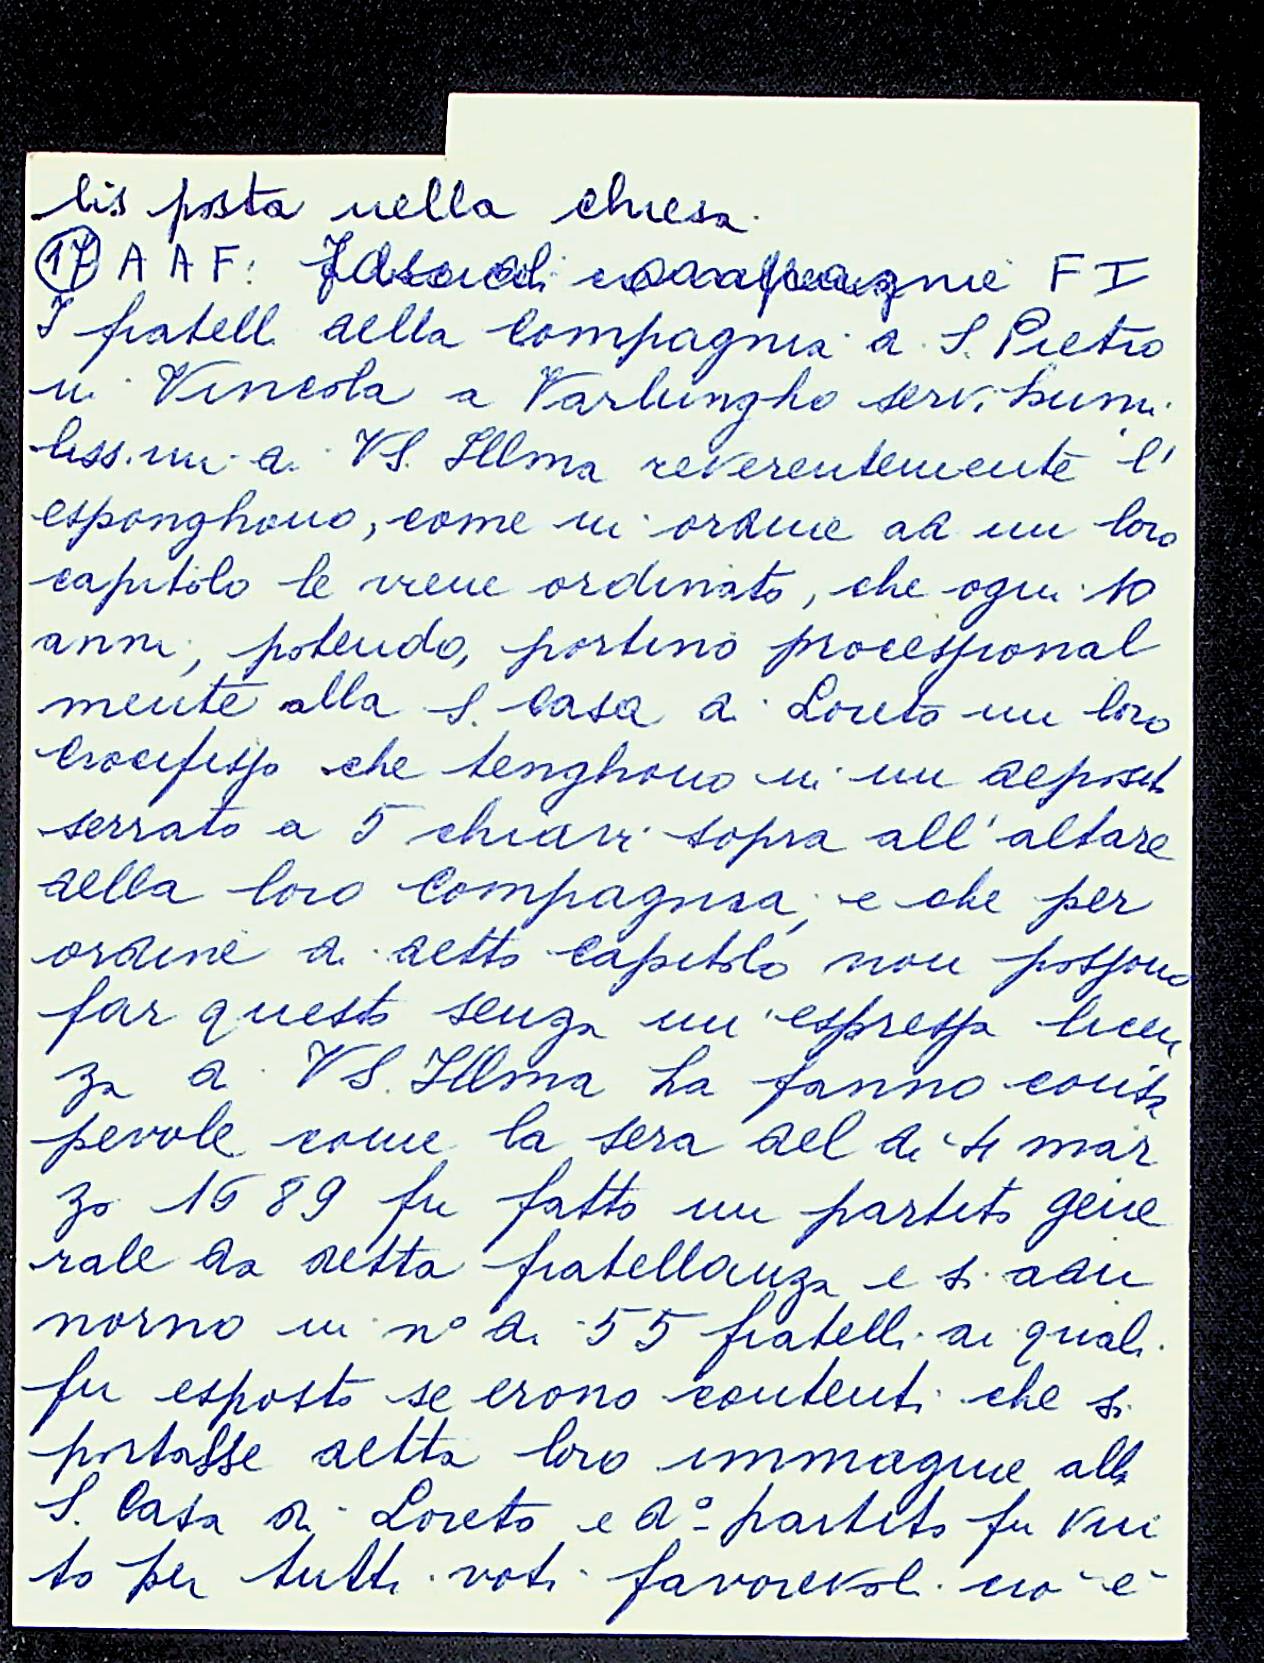 lis posta nella chiesa.
17 A A F: Fascicoli compagnie F I
I fratelli della Compagnia di S. Pietro
in Vincola a Varlungho servi humi
lissimi di VS. Illma reverentemente l'
esponghono, come in ordine ad un loro
capitolo le viene ordinato, che ogni 10
anni, potendo, portino processional
mente alla S. Casa di Loreto un loro
Crocifisso che tenghono in un deposito
serrato a 5 chiavi sopra all'altare
della loro Compagnia, e che per
ordine di detto capitolo non possono
far questo senza un'espressa licen
za di VS. Illma la fanno consa
pevole come la sera del di 4 mar
zo 1689 fu fatto un partito gene
rale da detta fratellanza e si adu
norno in n° di 55 fratelli ai quali
fu esposto se erono contenti che si
portasse detta loro immagine alla
S. Casa di Loreto e d° partito fu vin
to per tutti voti favorevoli ciò è